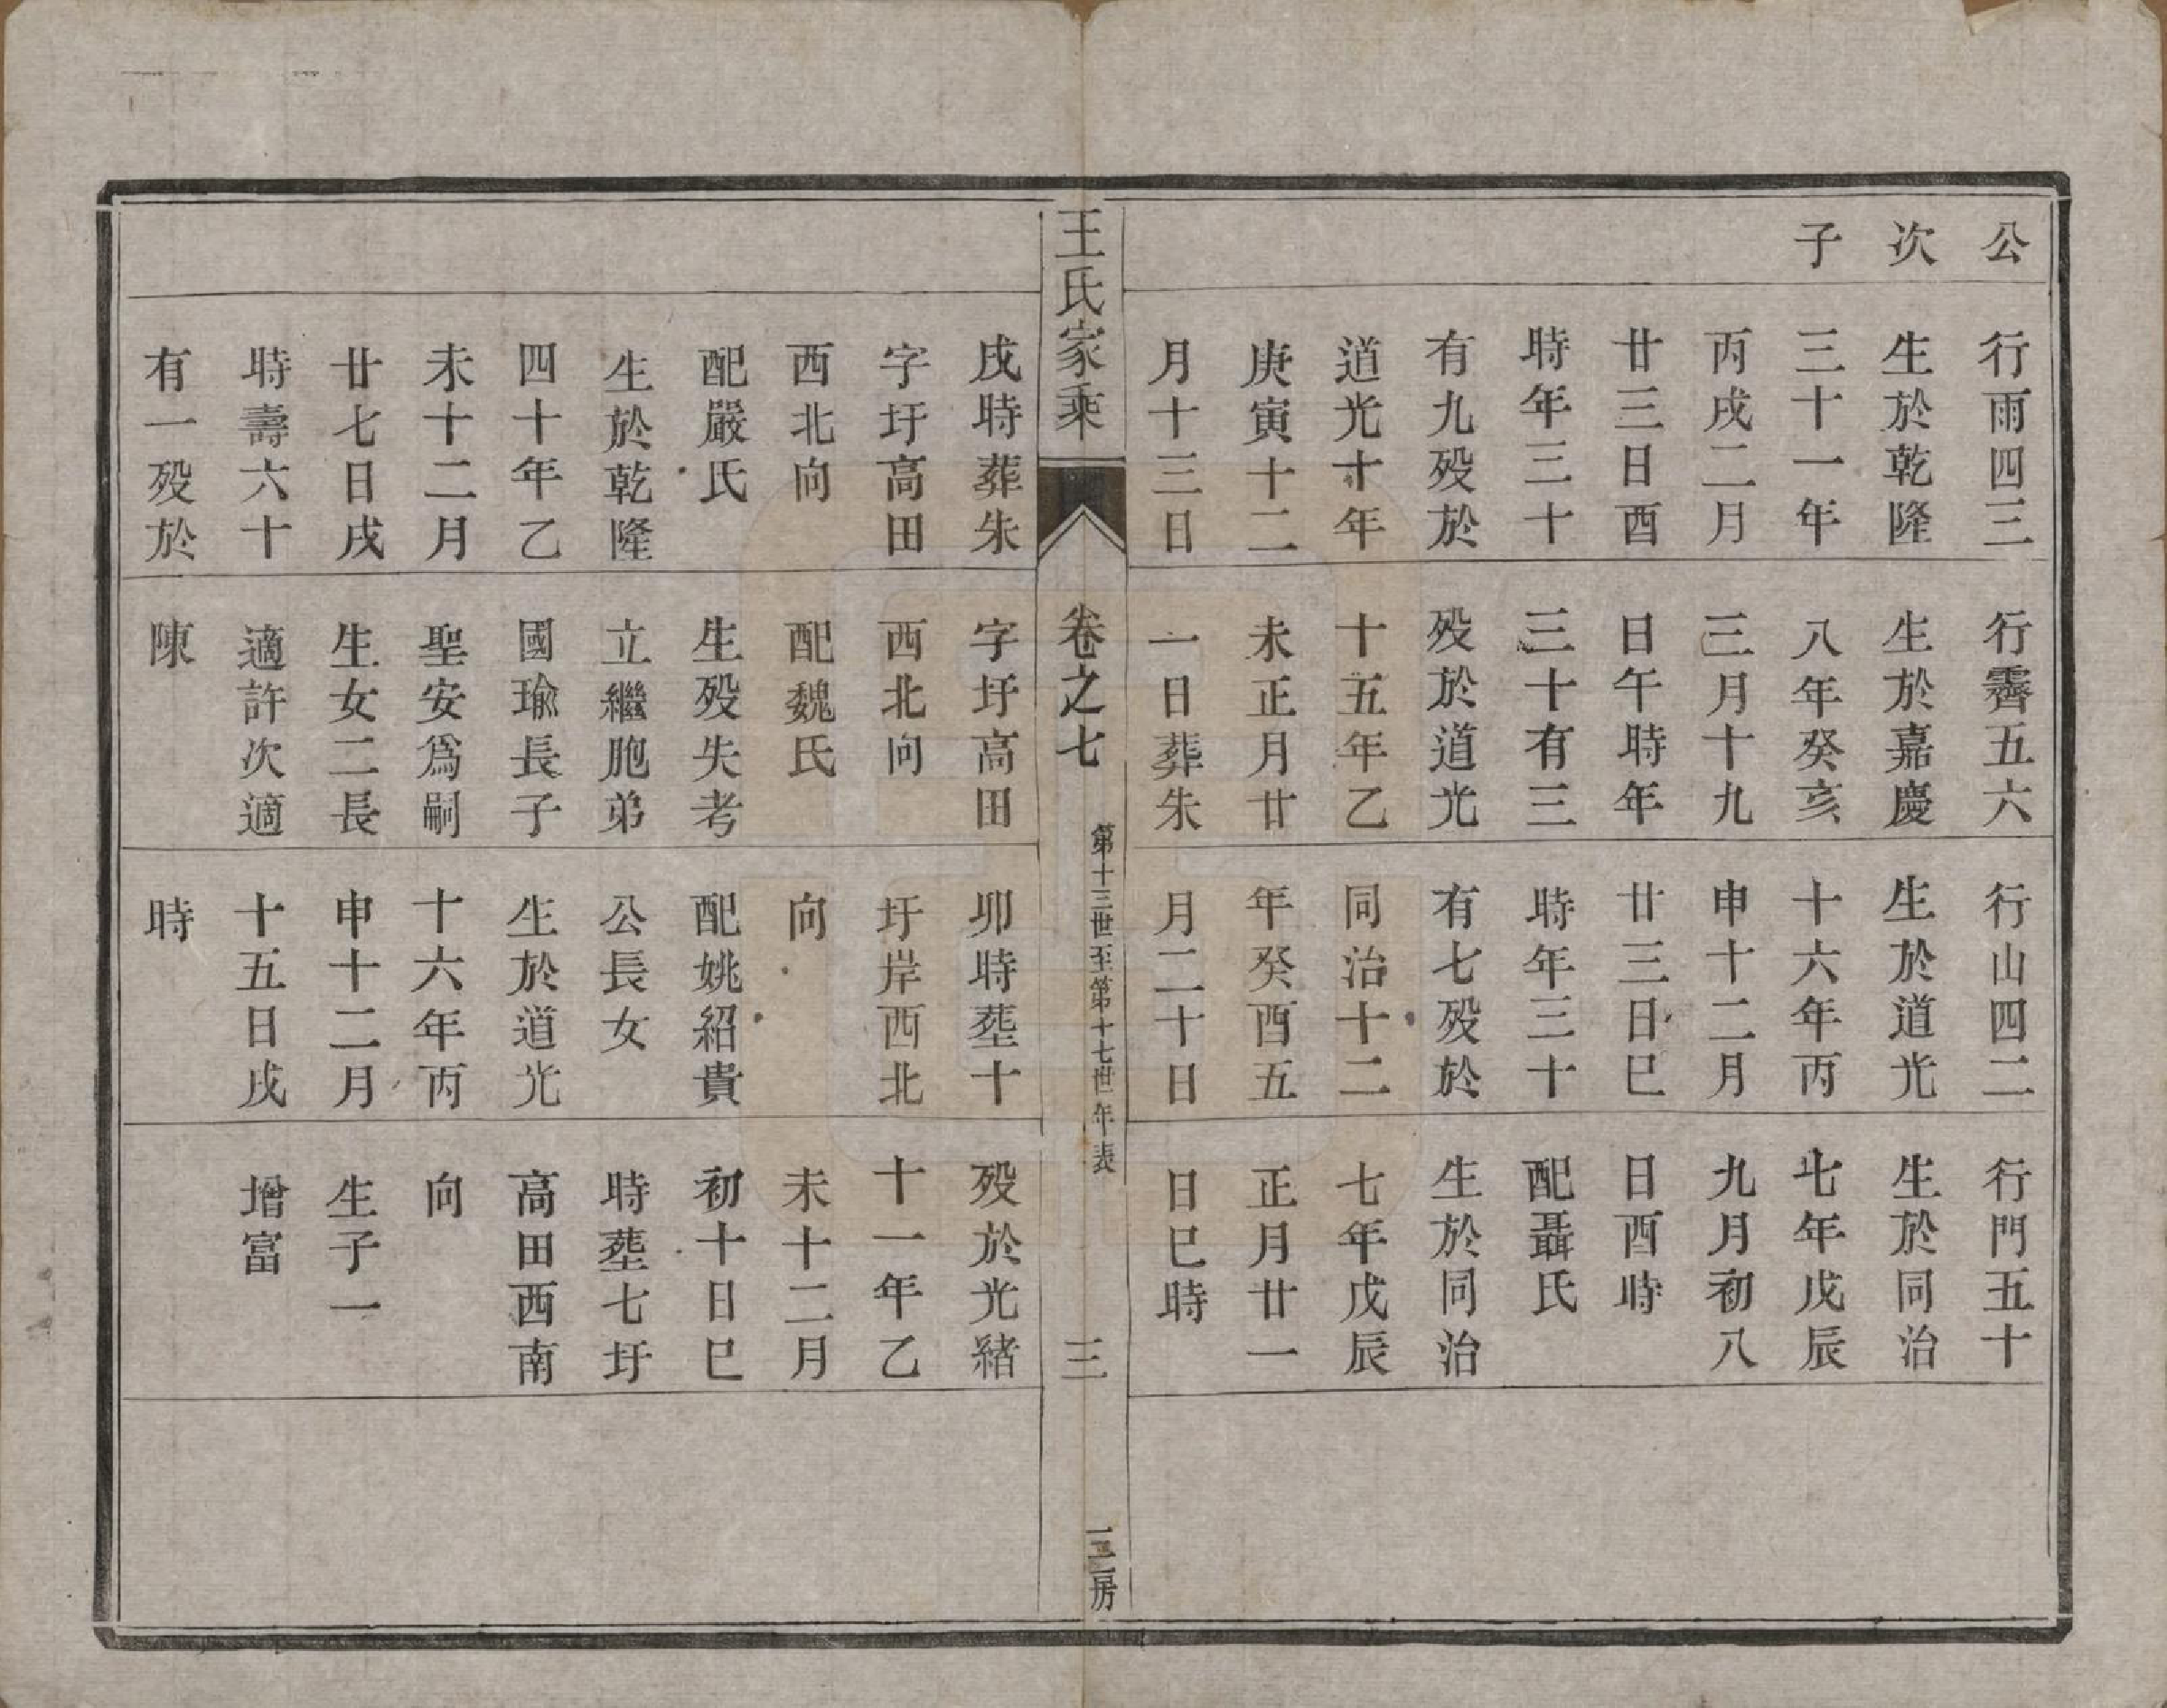 公
次
子
行雨四三
生於乾隆
三十一年
丙戌二月
廿三日酉
時年三十
有九歿於
道光十年
庚寅十二
月十三日
行霽五六
生於嘉慶
八年癸亥
三月十九
日午時年
三十有三
歿於道光
十五年乙
未正月廿
一日葬朱
行山四二
生於道光
十六年丙
申十二月
廿三日巳
時年三十
有七歿於
同治十二
年癸酉五
月二十日
行門五十
生於同治
七年戊辰
九月初八
日酉時
配聶氏
生於同治
七年戊辰
正月廿一
日巳時
王氏家乘
卷之七
第十三世至第十七世年表
三
三房
戌時葬朱
字圩高田
西北向
配嚴氏
生於乾隆
四十年乙
未十二月
廿七日戌
時壽六十
有一歿於
字圩高田
西北向
配魏氏
生歿失考
立繼胞弟
國瑜長子
聖安爲嗣
生女二長
適許次適
陳
卯時塟十
圩岸西北
向
配姚紹貴
公長女
生於道光
十六年丙
申十二月
十五日戌
時
歿於光緒
十一年乙
未十二月
初十日巳
時塟七圩
高田西南
向
生子一
增富